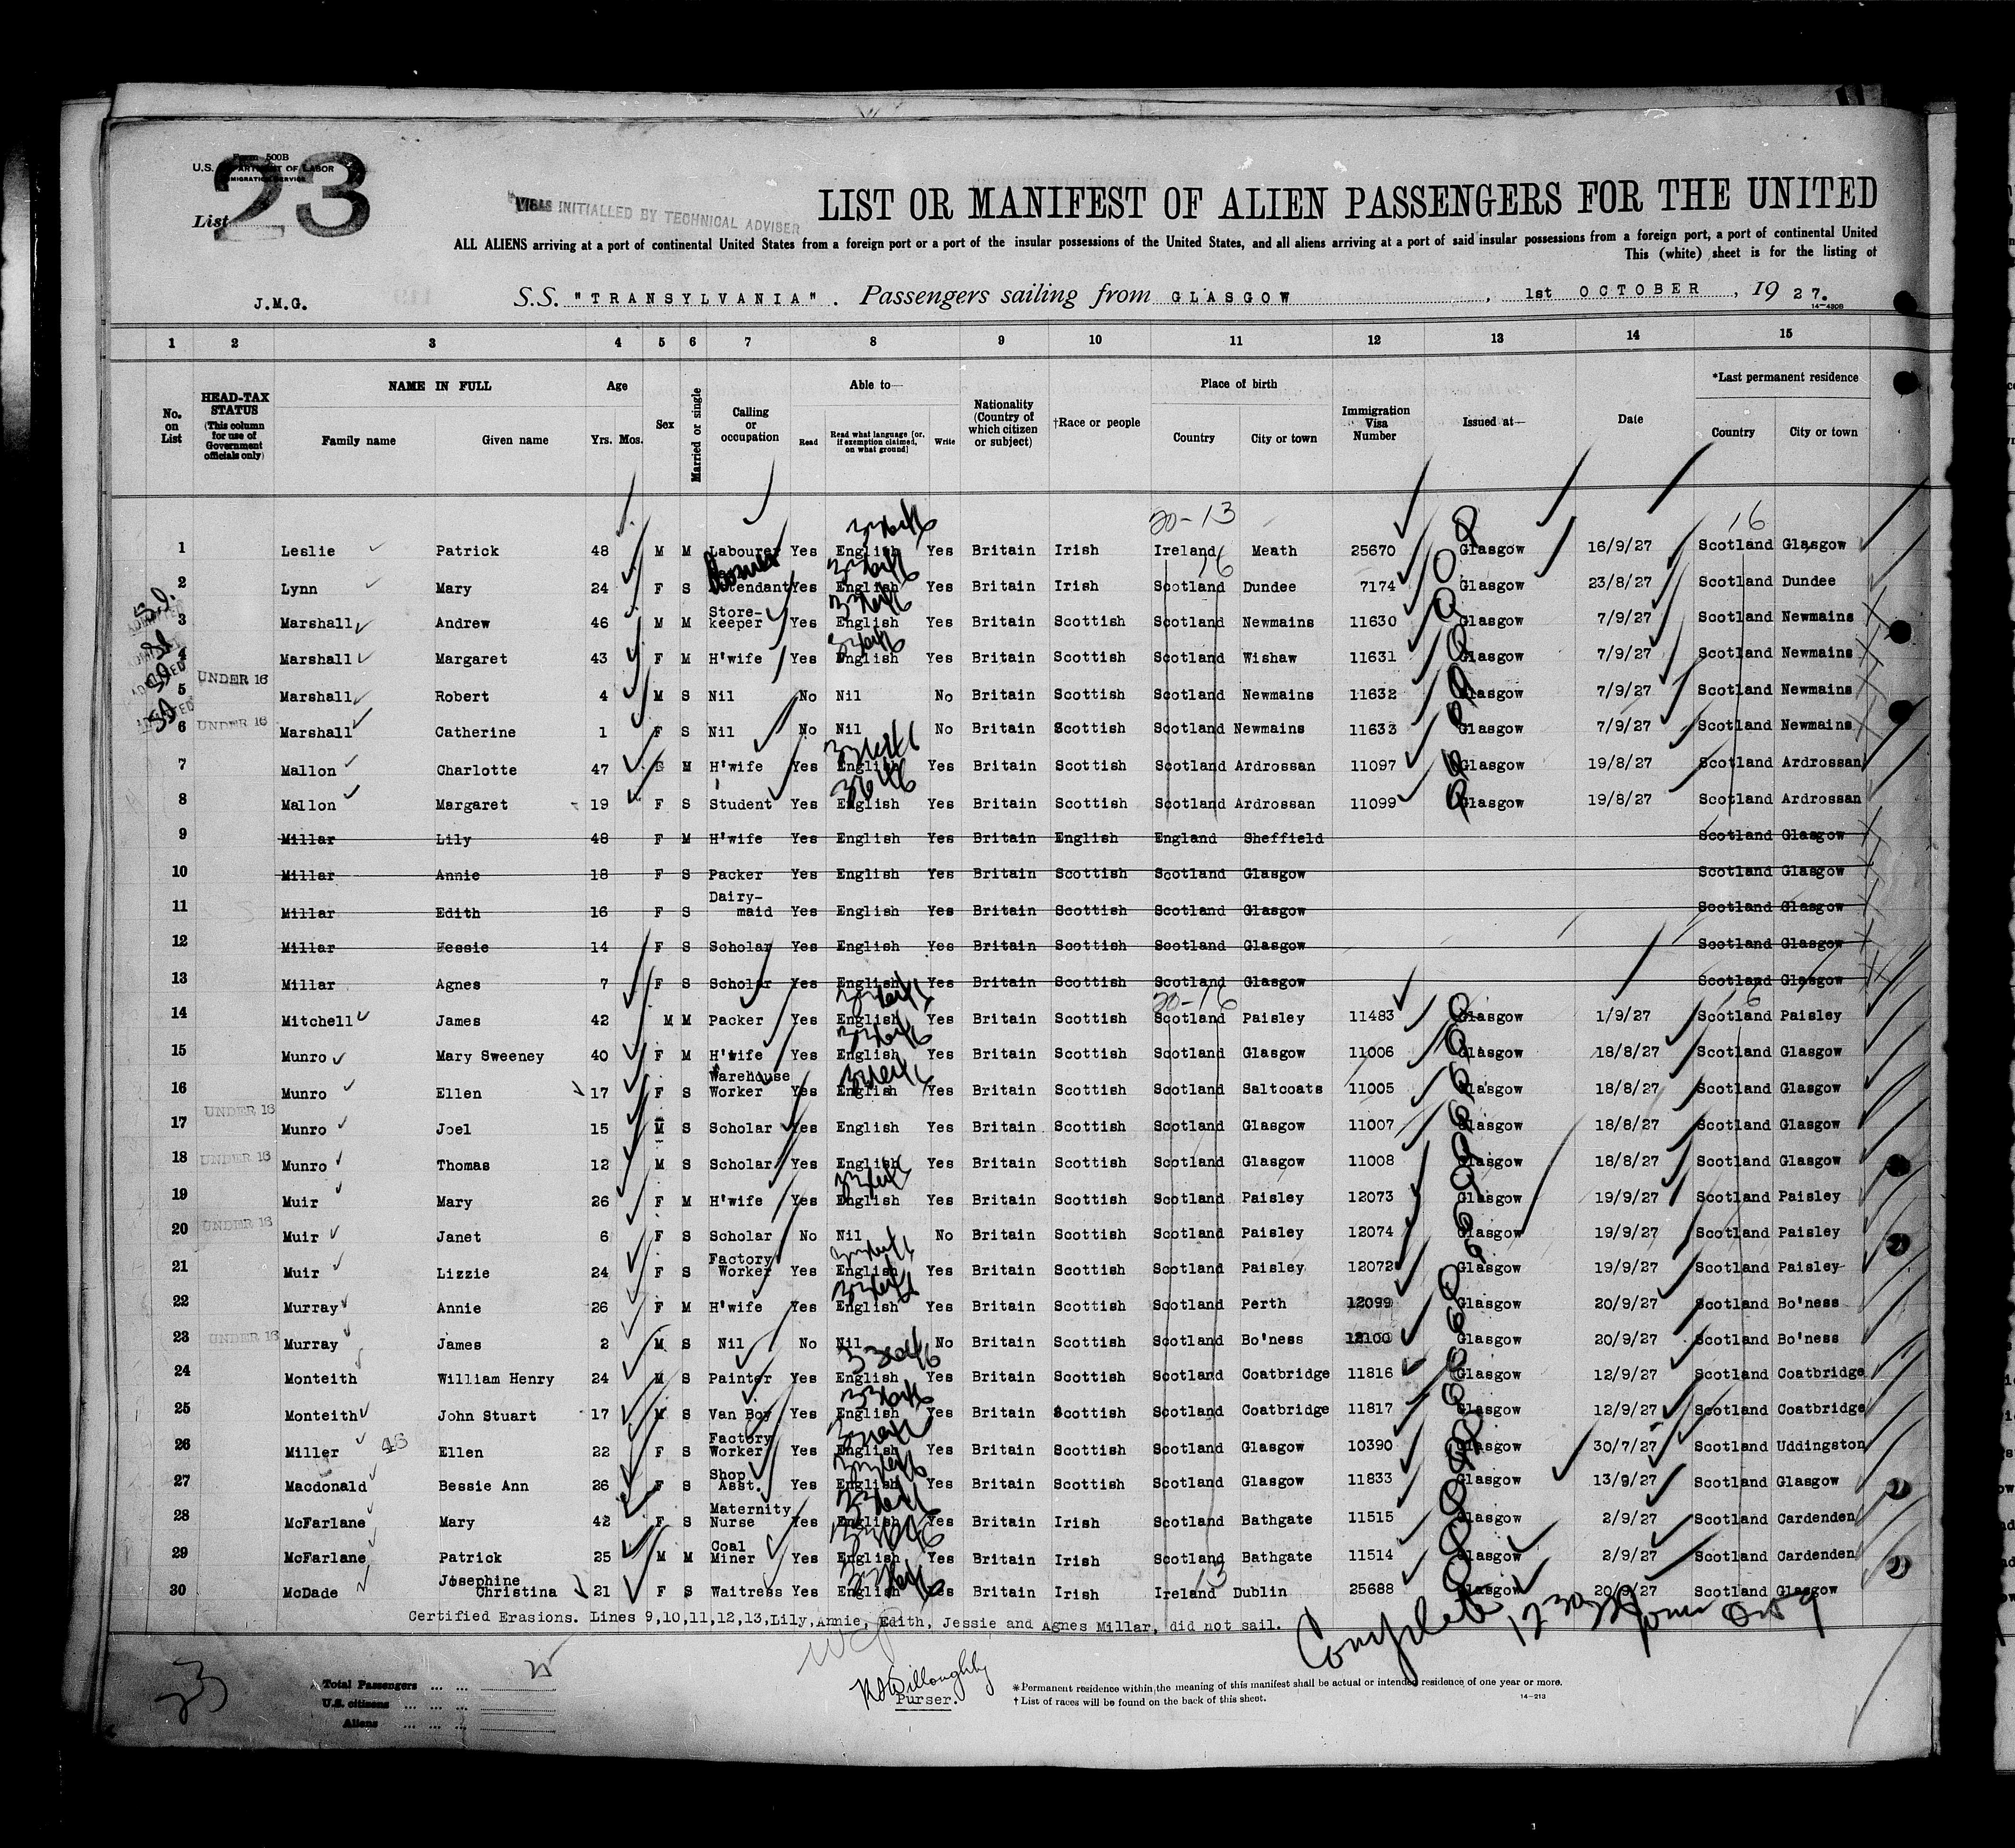 Form 500B
U.S. DEPARTMENT OF LABOR
IMMIGRATION SERVICE
List 23
VISAS INITIALLED BY TECHNICAL ADVISER
LIST OR MANIFEST OF ALIEN PASSENGERS FOR THE UNITED
ALL ALIENS arriving at a port of continental United States from a foreign port or a port of the insular possessions of the United States, and all aliens arriving at a port of said insular possessions from a foreign port, a port of continental United
This (white) sheet is for the listing of
J.M.G. S.S. "TRANSYLVANIA". Passengers sailing from GLASGOW, 1st OCTOBER, 1927.
14-430B
1 2 3 4 5 6 7 8 9 10 11 12 13 14 15
No. on List
HEAD-TAX STATUS (This column for use of Government officials only)
NAME IN FULL Family name Given name
Age Yrs. Mos.
Sex
Married or single
Calling or occupation
Able to— Read Read what language [or, if exemption claimed, on what ground] Write
Nationality (Country of which citizen or subject)
†Race or people
Place of birth Country City or town
Immigration Visa Number
Issued at—
Date
*Last permanent residence Country City or town
20-13 16
1 Leslie Patrick 48 M M Labourer Yes English Yes Britain Irish Ireland Meath 25670 Glasgow 16/9/27 Scotland Glasgow
16
2 Lynn Mary 24 F S Attendant Yes English Yes Britain Irish Scotland Dundee 7174 Glasgow 23/8/27 Scotland Dundee
3 Marshall Andrew 46 M M Store-keeper Yes English Yes Britain Scottish Scotland Newmains 11630 Glasgow 7/9/27 Scotland Newmains
4 Marshall Margaret 43 F M H'wife Yes English Yes Britain Scottish Scotland Wishaw 11631 Glasgow 7/9/27 Scotland Newmains
5 UNDER 16 Marshall Robert 4 M S Nil No Nil No Britain Scottish Scotland Newmains 11632 Glasgow 7/9/27 Scotland Newmains
6 UNDER 16 Marshall Catherine 1 F S Nil No Nil No Britain Scottish Scotland Newmains 11633 Glasgow 7/9/27 Scotland Newmains
7 Mallon Charlotte 47 F M H'wife Yes English Yes Britain Scottish Scotland Ardrossan 11097 Glasgow 19/8/27 Scotland Ardrossan
8 Mallon Margaret 19 F S Student Yes English Yes Britain Scottish Scotland Ardrossan 11099 Glasgow 19/8/27 Scotland Ardrossan
9 Millar Lily 48 F M H'wife Yes English Yes Britain English England Sheffield Scotland Glasgow
10 Millar Annie 18 F S Packer Yes English Yes Britain Scottish Scotland Glasgow Scotland Glasgow
11 Millar Edith 16 F S Dairy-maid Yes English Yes Britain Scottish Scotland Glasgow Scotland Glasgow
12 Millar Hessie 14 F S Scholar Yes English Yes Britain Scottish Scotland Glasgow Scotland Glasgow
13 Millar Agnes 7 F S Scholar Yes English Yes Britain Scottish Scotland Glasgow Scotland Glasgow
20-16 16
14 Mitchell James 42 M M Packer Yes English Yes Britain Scottish Scotland Paisley 11483 Glasgow 1/9/27 Scotland Paisley
15 Munro Mary Sweeney 40 F M H'wife Yes English Yes Britain Scottish Scotland Glasgow 11006 Glasgow 18/8/27 Scotland Glasgow
16 Munro Ellen 17 F S Warehouse Worker Yes English Yes Britain Scottish Scotland Saltcoats 11005 Glasgow 18/8/27 Scotland Glasgow
17 UNDER 16 Munro Joel 15 M S Scholar Yes English Yes Britain Scottish Scotland Glasgow 11007 Glasgow 18/8/27 Scotland Glasgow
18 UNDER 16 Munro Thomas 12 M S Scholar Yes English Yes Britain Scottish Scotland Glasgow 11008 Glasgow 18/8/27 Scotland Glasgow
19 Muir Mary 26 F M H'wife Yes English Yes Britain Scottish Scotland Paisley 12073 Glasgow 19/9/27 Scotland Paisley
20 UNDER 16 Muir Janet 6 F S Scholar No Nil No Britain Scottish Scotland Paisley 12074 Glasgow 19/9/27 Scotland Paisley
21 Muir Lizzie 24 F S Factory Worker Yes English Yes Britain Scottish Scotland Paisley 12072 Glasgow 19/9/27 Scotland Paisley
22 Murray Annie 26 F M H'wife Yes English Yes Britain Scottish Scotland Perth 12099 Glasgow 20/9/27 Scotland Bo'ness
23 UNDER 16 Murray James 2 M S Nil No Nil No Britain Scottish Scotland Bo'ness 12100 Glasgow 20/9/27 Scotland Bo'ness
24 Monteith William Henry 24 M S Painter Yes English Yes Britain Scottish Scotland Coatbridge 11816 Glasgow 12/9/27 Scotland Coatbridge
25 Monteith John Stuart 17 M S Van Boy Yes English Yes Britain Scottish Scotland Coatbridge 11817 Glasgow 12/9/27 Scotland Coatbridge
26 Miller 48 Ellen 22 F S Factory Worker Yes English Yes Britain Scottish Scotland Glasgow 10390 Glasgow 30/7/27 Scotland Uddingston
27 Macdonald Bessie Ann 26 F S Shop Asst. Yes English Yes Britain Scottish Scotland Glasgow 11833 Glasgow 13/9/27 Scotland Glasgow
28 McFarlane Mary 42 F S Maternity Nurse Yes English Yes Britain Irish Scotland Bathgate 11515 Glasgow 2/9/27 Scotland Cardenden
29 McFarlane Patrick 25 M M Coal Miner Yes English Yes Britain Irish Scotland Bathgate 11514 Glasgow 2/9/27 Scotland Cardenden
13
30 McDade Josephine Christina 21 F S Waitress Yes English Yes Britain Irish Ireland Dublin 25688 Glasgow 20/9/27 Scotland Glasgow
Certified Erasions. Lines 9,10,11,12,13,Lily,Annie, Edith, Jessie and Agnes Millar, did not sail.
Complete
Willoughby
Purser.
Total Passengers ... ... 25
U.S. citizens ... ...
Aliens ... ... ...
*Permanent residence within the meaning of this manifest shall be actual or intended residence of one year or more.
†List of races will be found on the back of this sheet.
14-213